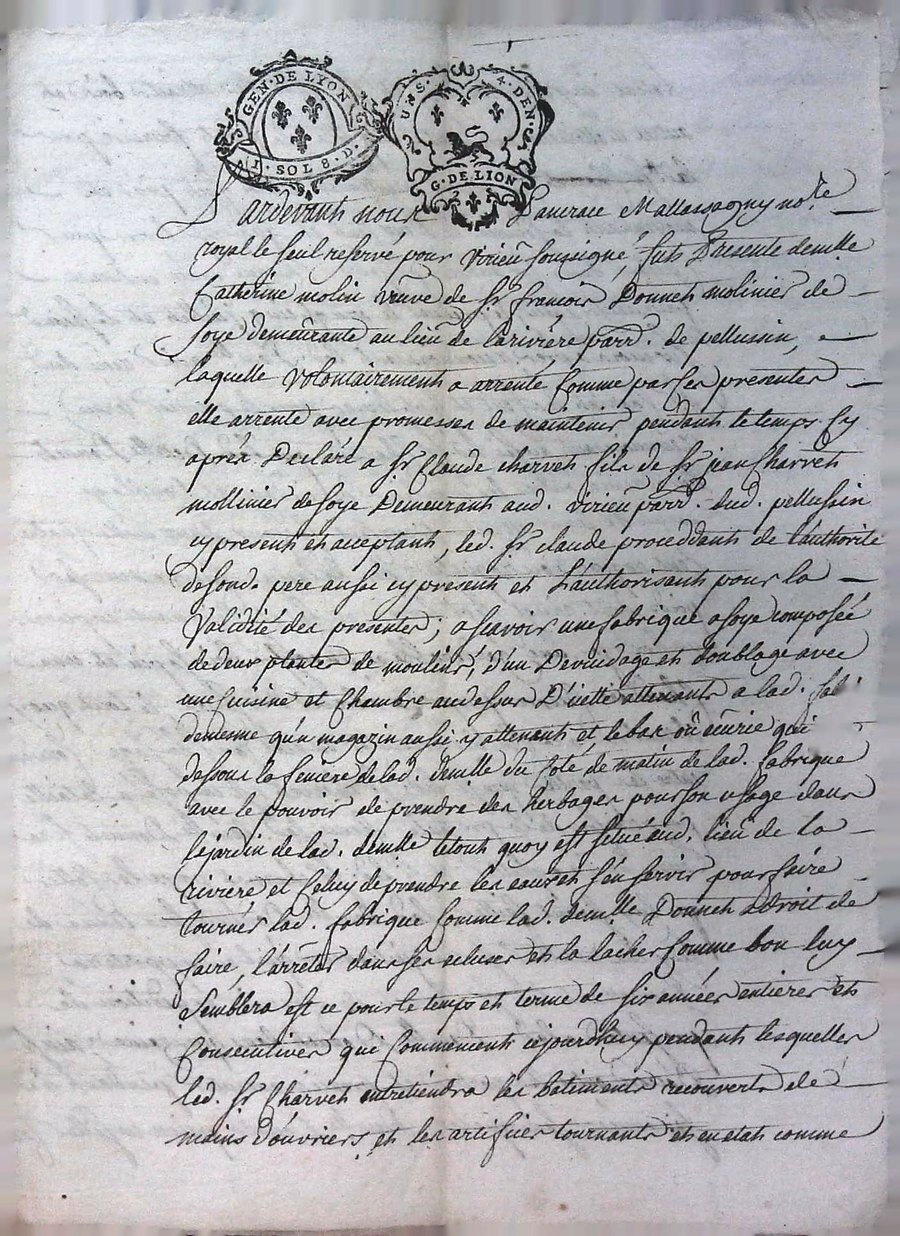 GEN · DE LYON
1 · SOL 8 · D ·
UN S · 4 · DEN ·
G · DE LION
Pardevant nous Pancrace Mallassagny no.re
royal le seul reservé pour virieu soussigné, fut Presente demlle
Catherine molin veuve de Sr. françois Donnet molinier de
soye demeurante au lieu de la riviere parr. de pellussin,
laquelle volontairement a arrenté comme par ces presentes
elle arrente avec promesses de maintenir pendant le temps cy
aprés Declaré a Sr. Claude charvet fils de Sr. jean Charvet
mollinier de soye Demeurant aud. virieu parr. dud. pellussin
cy present et acceptant, led. Sr. claude proceddant de l'authorité
de sond. pere aussi cy present et l'authorisant pour la
Validité des presentes; a scavoir une fabrique a soye composée
de deux plantes de moulins, d'un Devuidage et doublage avec
une Cuisine et Chambre au dessus D'icelle attenants a lad. fab
de mesme qu'un magazin aussi y attenant et le bas ou écurie qui
dessous la feniere de lad. demlle du coté de matin de lad. fabrique
avec le pouvoir de prendre des herbages pour son usage dans
le jardin de lad. demlle le tout quoy est situé aud. lieu de la
riviere et Celuy de prendre les eaux et s'en servir pour faire
tourner lad. fabrique Comme lad. demlle Donnet a droit de
faire, l'arreter dans ses ecluses et la lacher Comme bon luy
Semblera est ce pour le temps et terme de six années entieres et
Consecutives qui Commencent cejourdhuy pendant lesquelles
led. Sr. Charvet entretiendra les batiments recouverts de
mains d'ouvriers et les artifices tournants et en etat comme